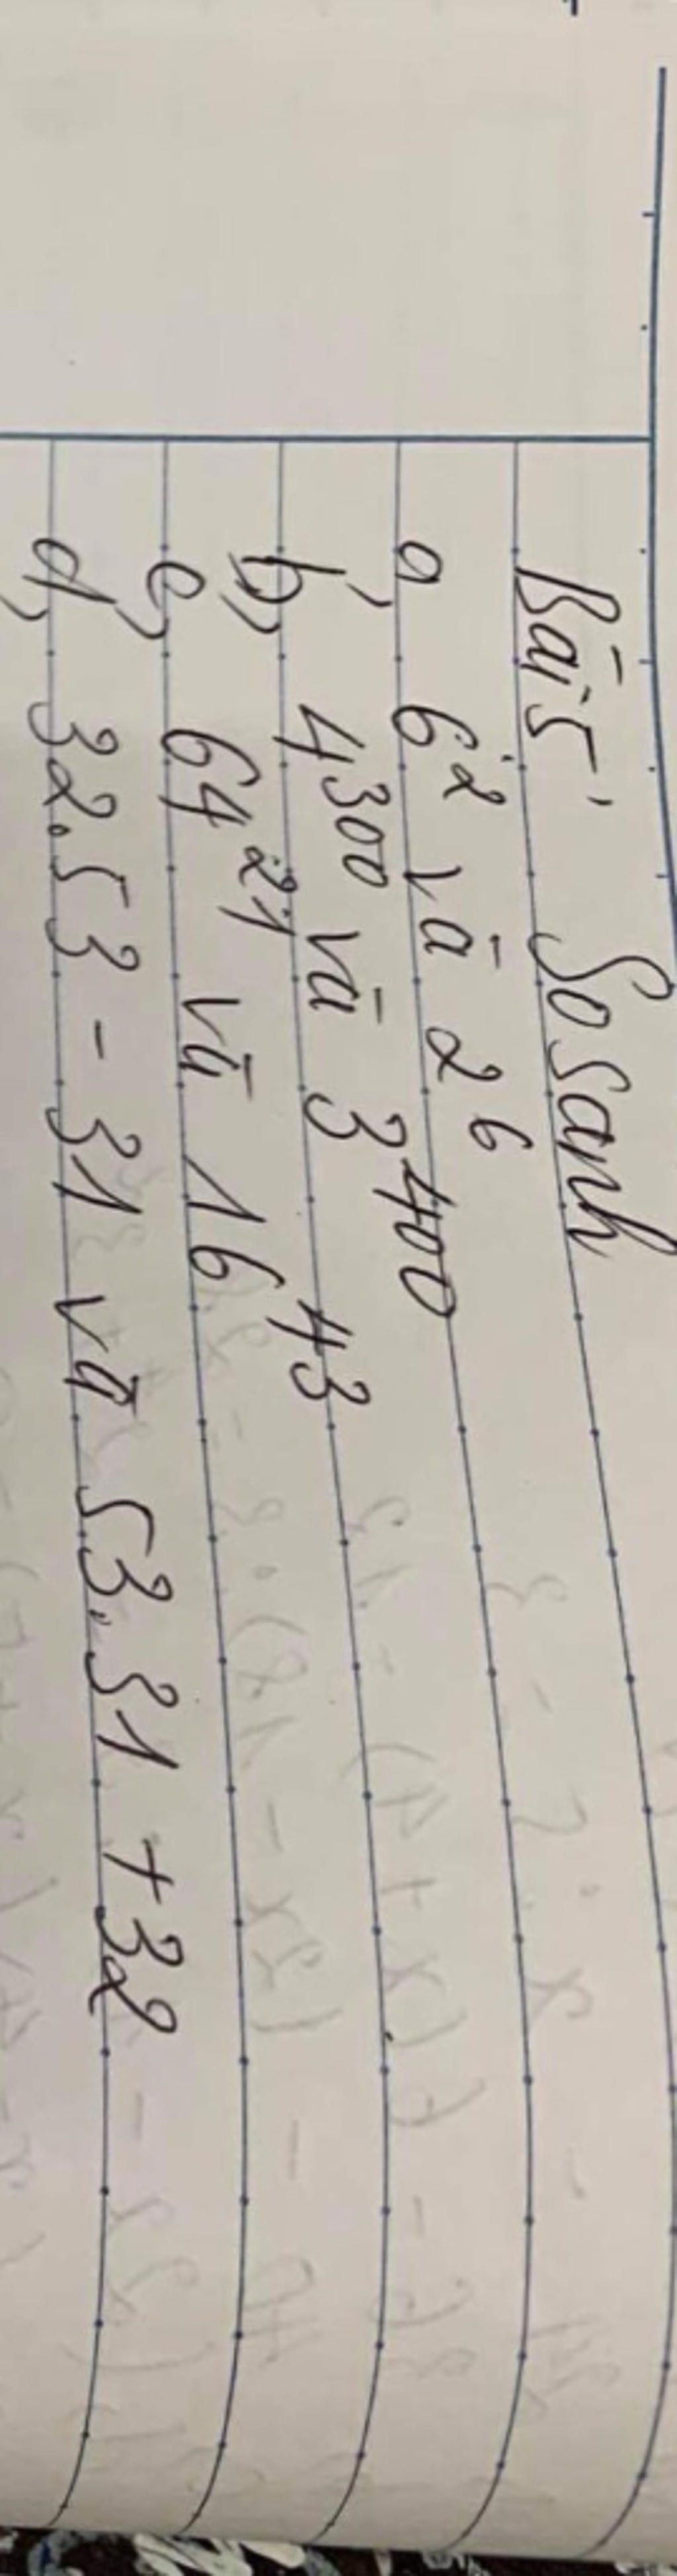 Bài 5: So sanh
a, 6² và 2⁶
b, 4³⁰⁰ và 3⁴⁰⁰
c, 64²¹ và 16⁴³
d, 32.53 - 31 và 53.31 + 32